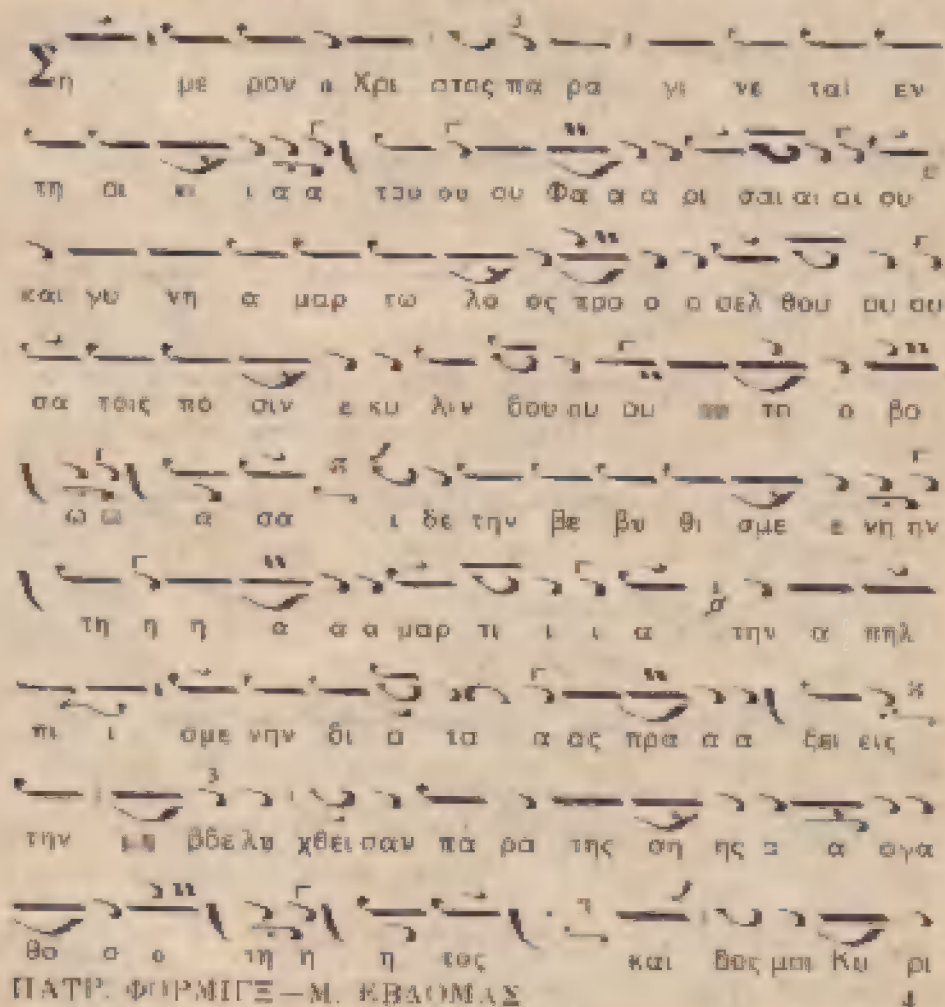 Ση με ρον ο Χρι στος πα ρα γι νε ται εν
τη οι κι ι α α του ου ου Φα α α ρι σαι αι αι ου
και γυ νη α μαρ τω λο ος προ ο ο σελ θου ου ου
σα τοις πο σιν ε κυ λιν δου ου ου το ο βο
ω ω α σα ι δε την βε βυ θι σμε ε νη ην
τη η η α α α μαρ τι ι ι α την α πηλ
πι ι σμε νην δι α τα α ας πρα α α ξει εις
την μη βδε λυ χθει σαν πα ρα της ση ης α α αγα
θο ο ο τη η η τος και δος μοι Κυ ρι
ΠΑΤΡ. ΦΟΡΜΙΓΞ—Μ. ΕΒΔΟΜΑΣ